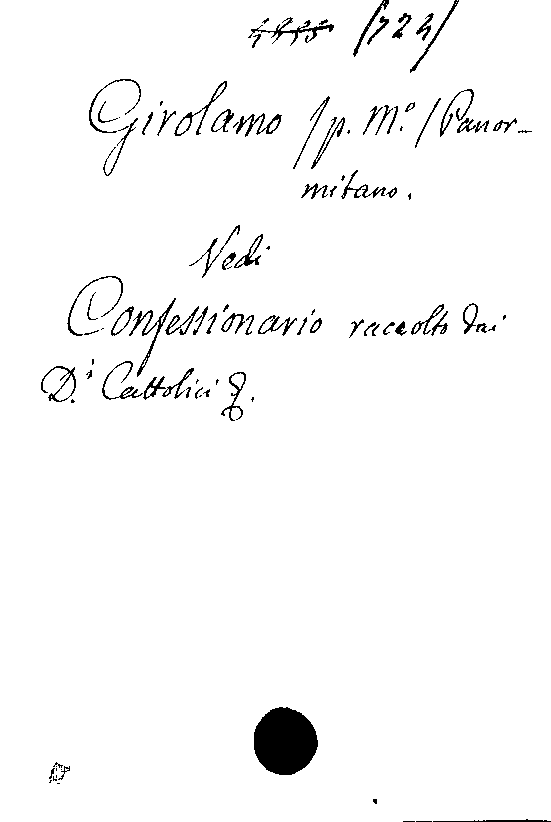 (724)
Girolamo /p. M.º/ Panor-
mitano.
Vedi
Confessionario raccolto dai
D.i Cattolici &.